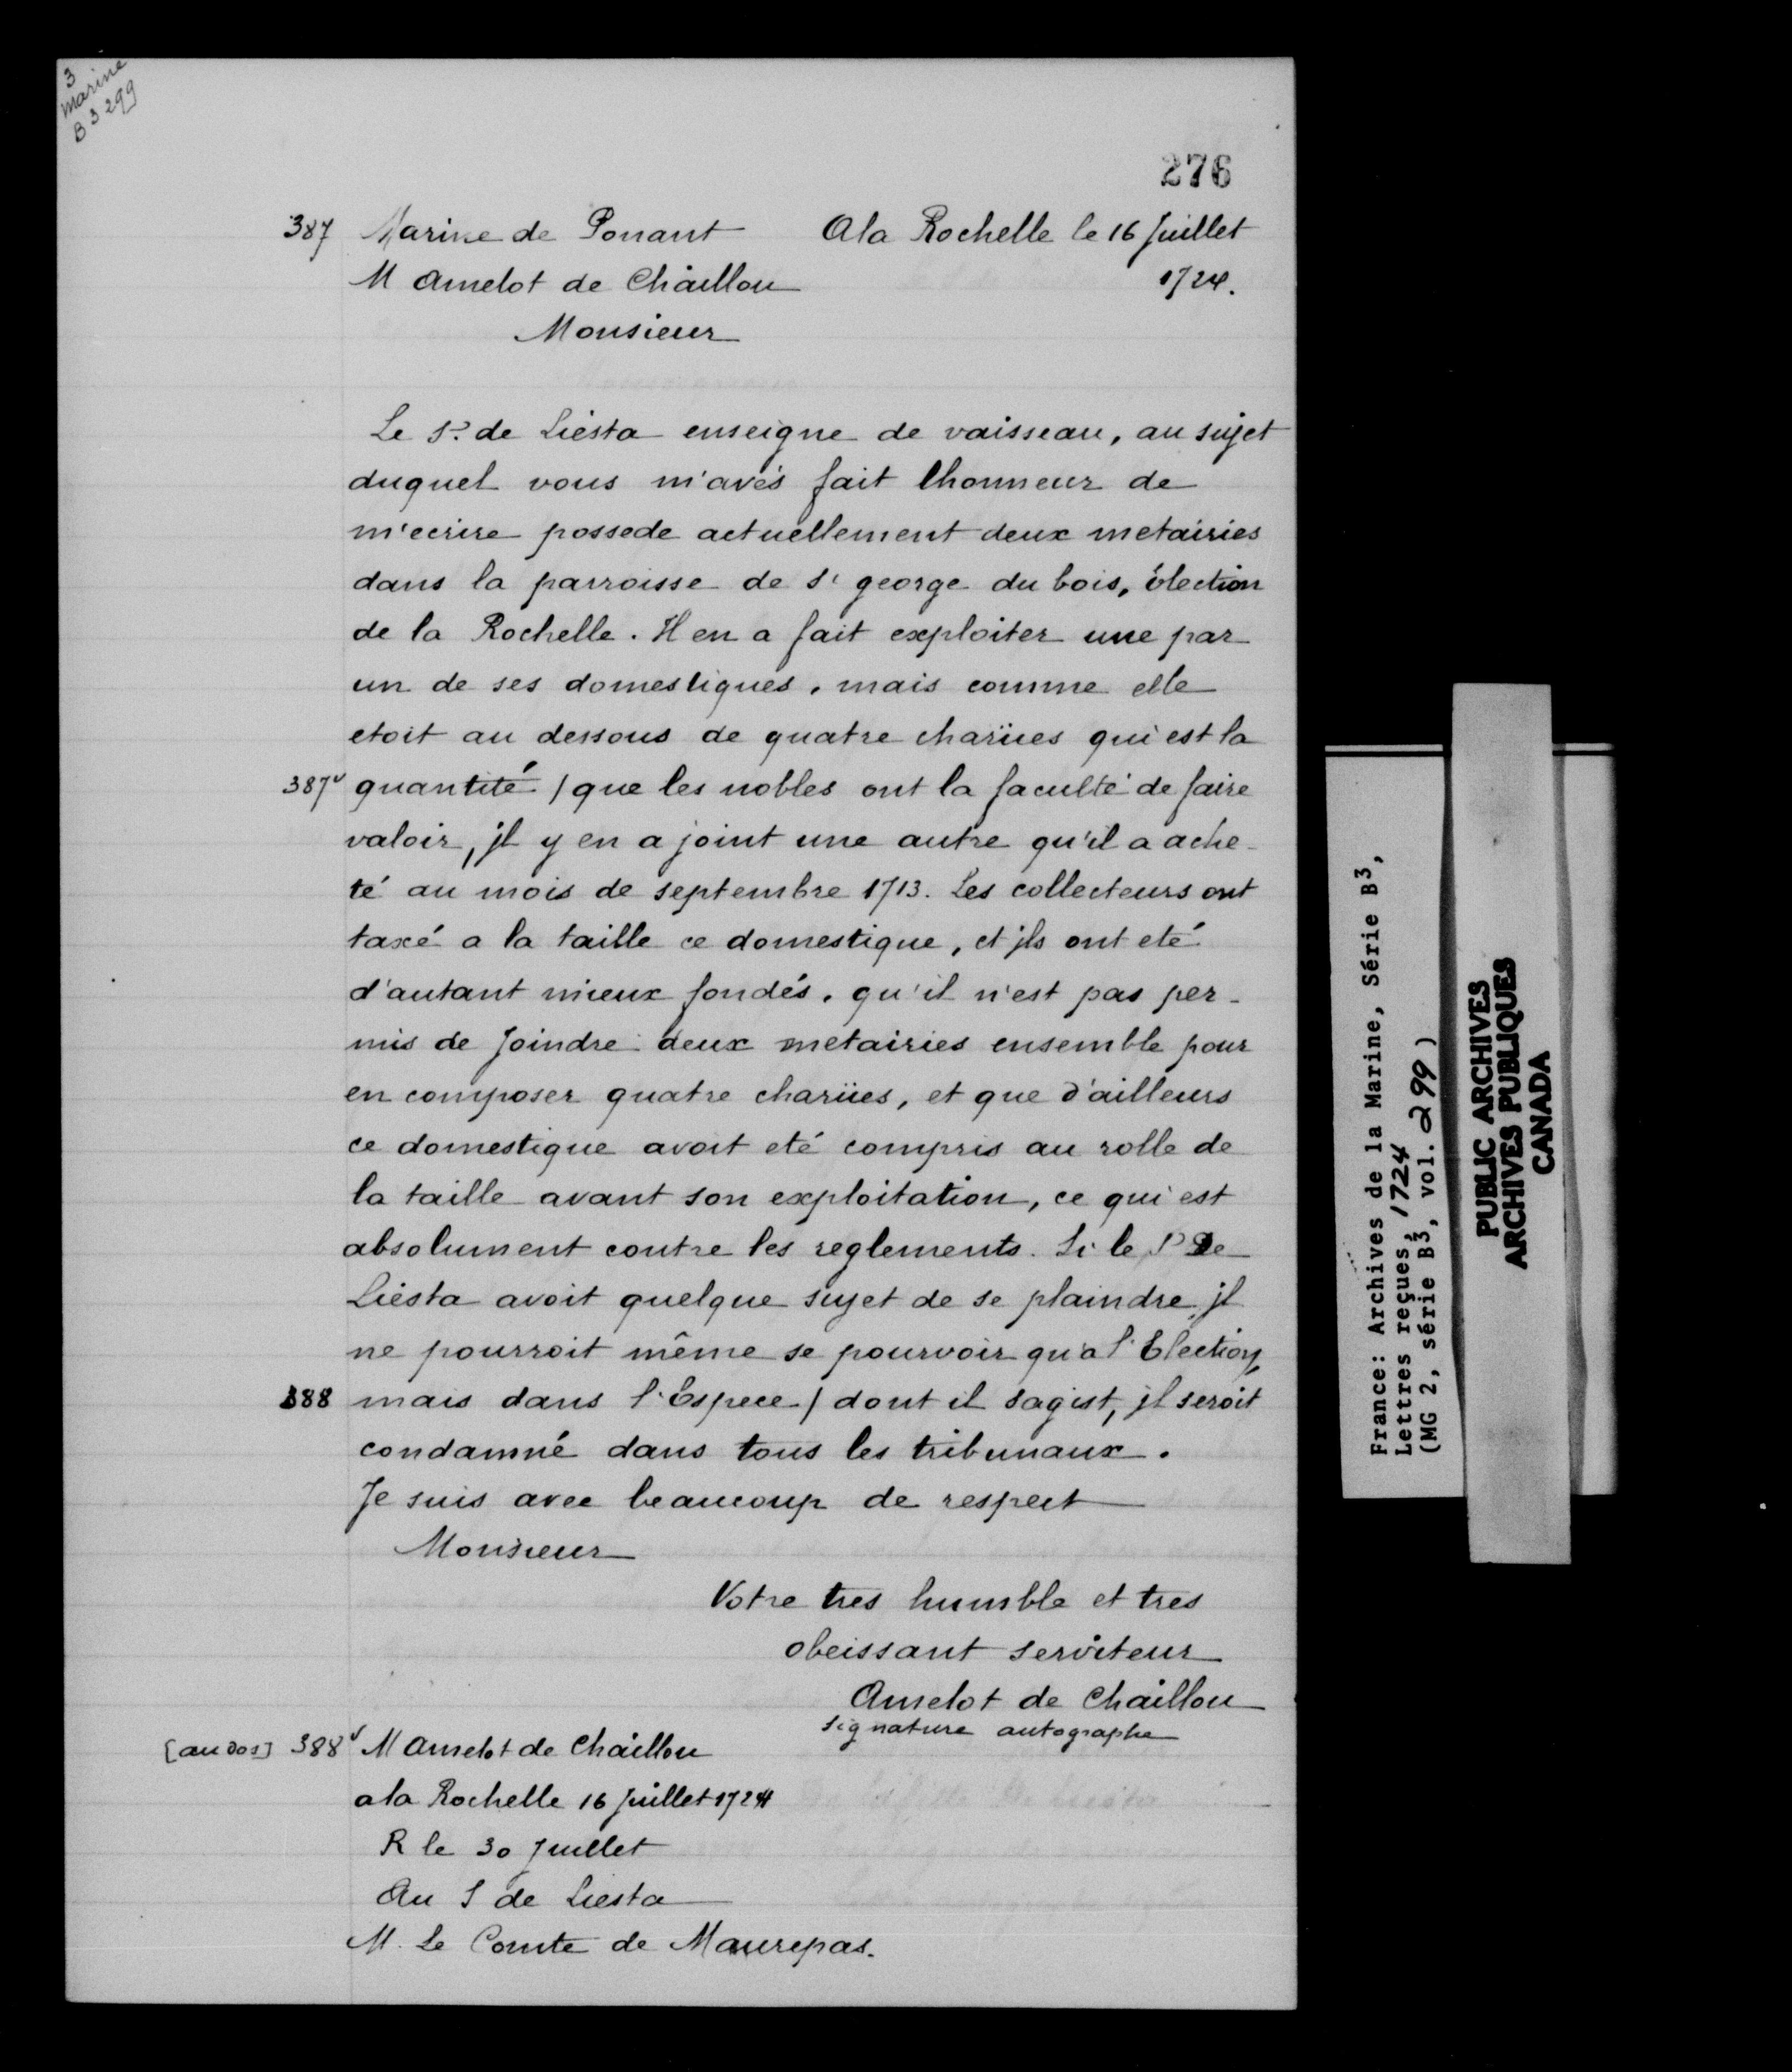 3
Marine
B 3 299
276
387 Marine de Ponant A la Rochelle le 16 Juillet
M Amelot de Chaillou 1724.
Monsieur
Le Sr. de Liesta enseigne de vaisseau, au sujet
duquel vous m'avés fait lhonneur de
m'ecrire possede actuellement deux metairies
dans la parroisse de St george du bois, élection
de la Rochelle. Il en a fait exploiter une par
un de ses domestiques, mais comme elle
etoit au dessous de quatre charües qui est la
387v quantité / que les nobles ont la faculté de faire
valoir, jl y en a joint une autre qu'il a ache-
té au mois de septembre 1713. Les collecteurs ont
taxé a la taille ce domestique, et jls ont eté
d'autant mieux fondés, qu'il n'est pas per-
mis de Joindre deux metairies ensemble pour
en composer quatre charües, et que d'ailleurs
ce domestique avoit eté compris au rolle de
la taille avant son exploitation, ce qui est
absolument contre les reglements. Si le Sr De
Liesta avoit quelque sujet de se plaindre, jl
ne pourroit même se pourvoir qu'a l'Election,
388 mais dans l'Espece / dont il sagist, jl seroit
condamné dans tous les tribunaux.
Je suis avec beaucoup de respect
Monsieur
Votre tres humble et tres
obeissant serviteur
Amelot de Chaillou
signature autographe
[au dos] 388v M Amelot de Chaillou
a la Rochelle 16 Juillet 1724
R le 30 Juillet
Au S de Liesta
M. Le Comte de Maurepas.
France: Archives de la Marine, Série B3,
Lettres reçues, 1724
(MG 2, série B3, vol. 299)
PUBLIC ARCHIVES
ARCHIVES PUBLIQUES
CANADA